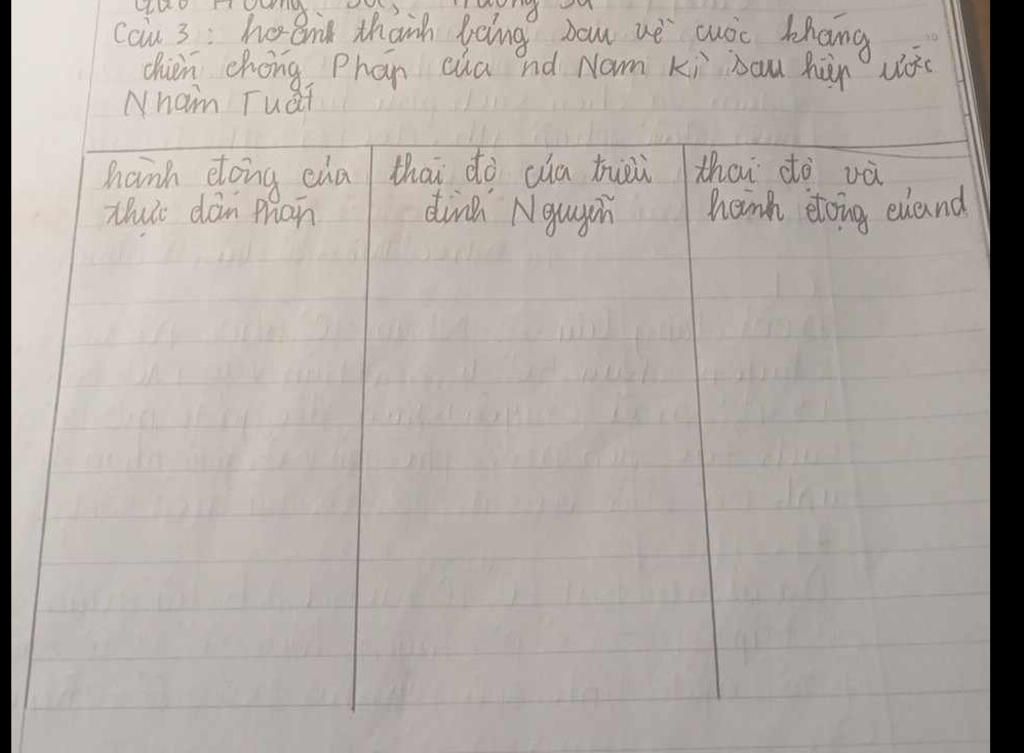 Câu 3: hoành thành bảng sau về cuộc kháng
chiến chống Pháp của nd Nam Kì sau hiệp ước
Nhâm Tuất
hành động của
thực dân Pháp
thái độ của triều
đình Nguyễn
thái độ và
hành động của nd